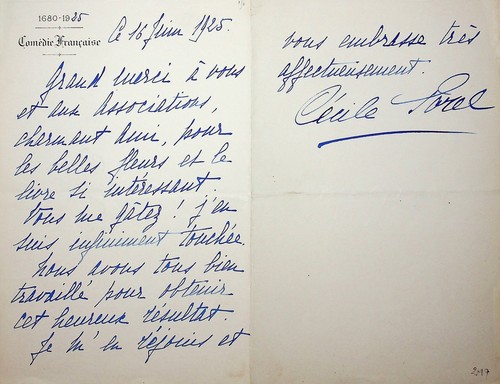 1680-1925
Comédie Française
Ce 16 Juin 1925.
Grand merci à vous
et aux Associations,
charmant ami, pour
les belles fleurs et le
livre si intéressant.
Vous me gâtez ! j'en
suis infiniment touchée.
Nous avons tous bien
travaillé pour obtenir
cet heureux résultat.
Je m'en réjouis et
vous embrasse très
affectueusement.
Cécile Sorel
297